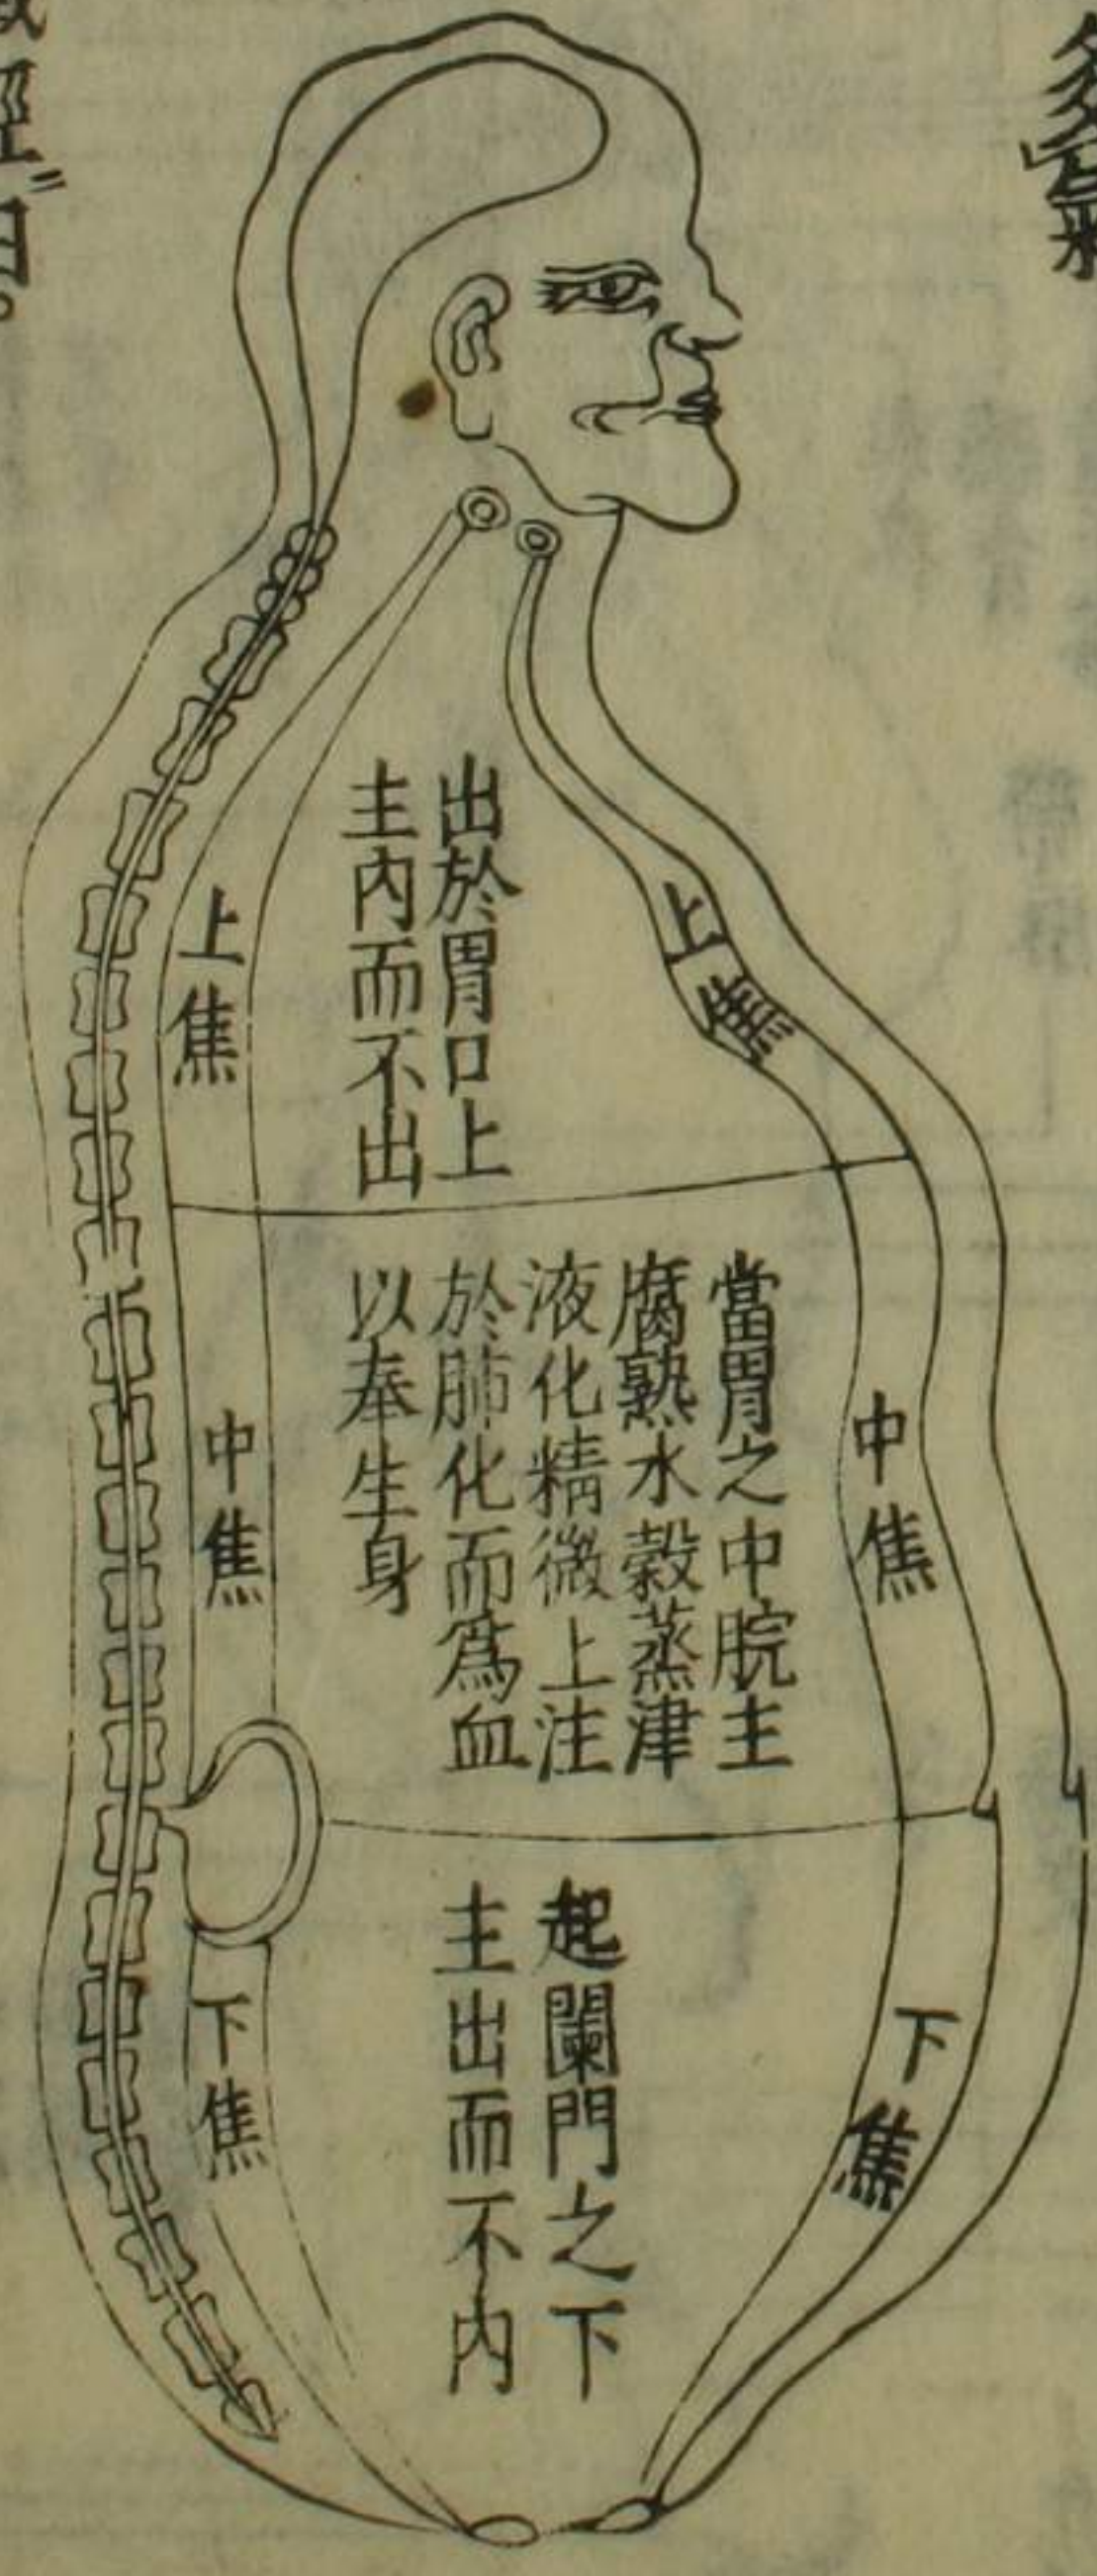 上焦
出於胃口上
主內而不出
上焦
中焦
當胃之中脘主
腐熟水穀蒸津
液化精微上注
於肺化而爲血
以奉生身
中焦
下焦
起闌門之下
主出而不內
下焦
經